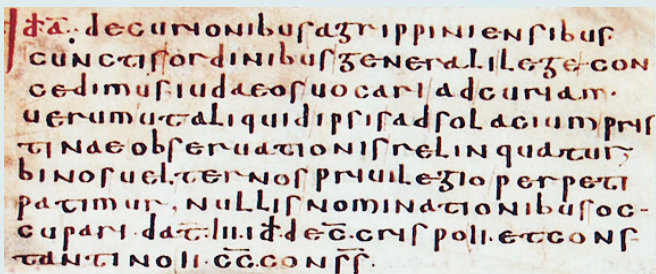 id̄ a. decurionibus agrippiniensibus
cunctis ordinibus generali lege con
cedimus iudaeos uocari ad curiam.
uerum ut aliquid ipsis ad solacium pris
tinae obseruationis relinquatur,
binos uel ternos priuilegio perpeti
patimur, nullis nominationibus oc-
cupari. dat̄. iii. id̄. dec̄. crispo ii. et cons
tantino ii. c̄c̄. cons̄s̄.